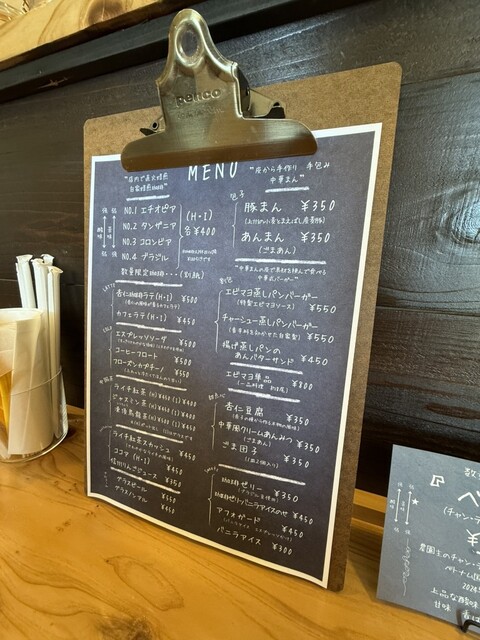 Penco
MENU
"店内で直火焙煎
自家焙煎珈琲"
NO.1 エチオピア
NO.2 タンザニア
NO.3 コロンビア
NO.4 ブラジル
(H・I)
各¥400
数量限定珈琲・・・(別紙)
杏仁珈琲ラテ(H・I) ¥500
カフェラテ(H・I) ¥450
エスプレッソソーダ ¥500
コーヒーフロート ¥500
フローズンカプチーノ ¥550
ライチ紅茶(H)¥450(I)¥400
ジャスミン茶(H)¥450(I)¥400
凍頂烏龍茶(H)¥450(I)¥400
ライチ紅茶スカッシュ ¥450
ココア(H・I) ¥450
信州りんごジュース ¥350
グラスビール ¥450
グラスノンアル ¥350
"皮から手作り 手包み
中華まん"
包子
豚まん ¥350
あんまん ¥350
(ごまあん)
エビマヨ蒸しパンバーガー ¥550
(特製エビマヨソース)
チャーシュー蒸しパンバーガー ¥550
揚げ蒸しパンの
あんバターサンド ¥450
エビマヨ単品 ¥800
杏仁豆腐 ¥350
中華風クリームあんみつ ¥350
(ごまあん)
ごま団子 ¥350
珈琲ゼリー ¥350
珈琲ゼリーバニラアイスのせ ¥450
アフォガード ¥450
バニラアイス ¥300
数
ベ
(チャン・
¥
農園主のチャン・
ベトナム
上品な酸味
甘味